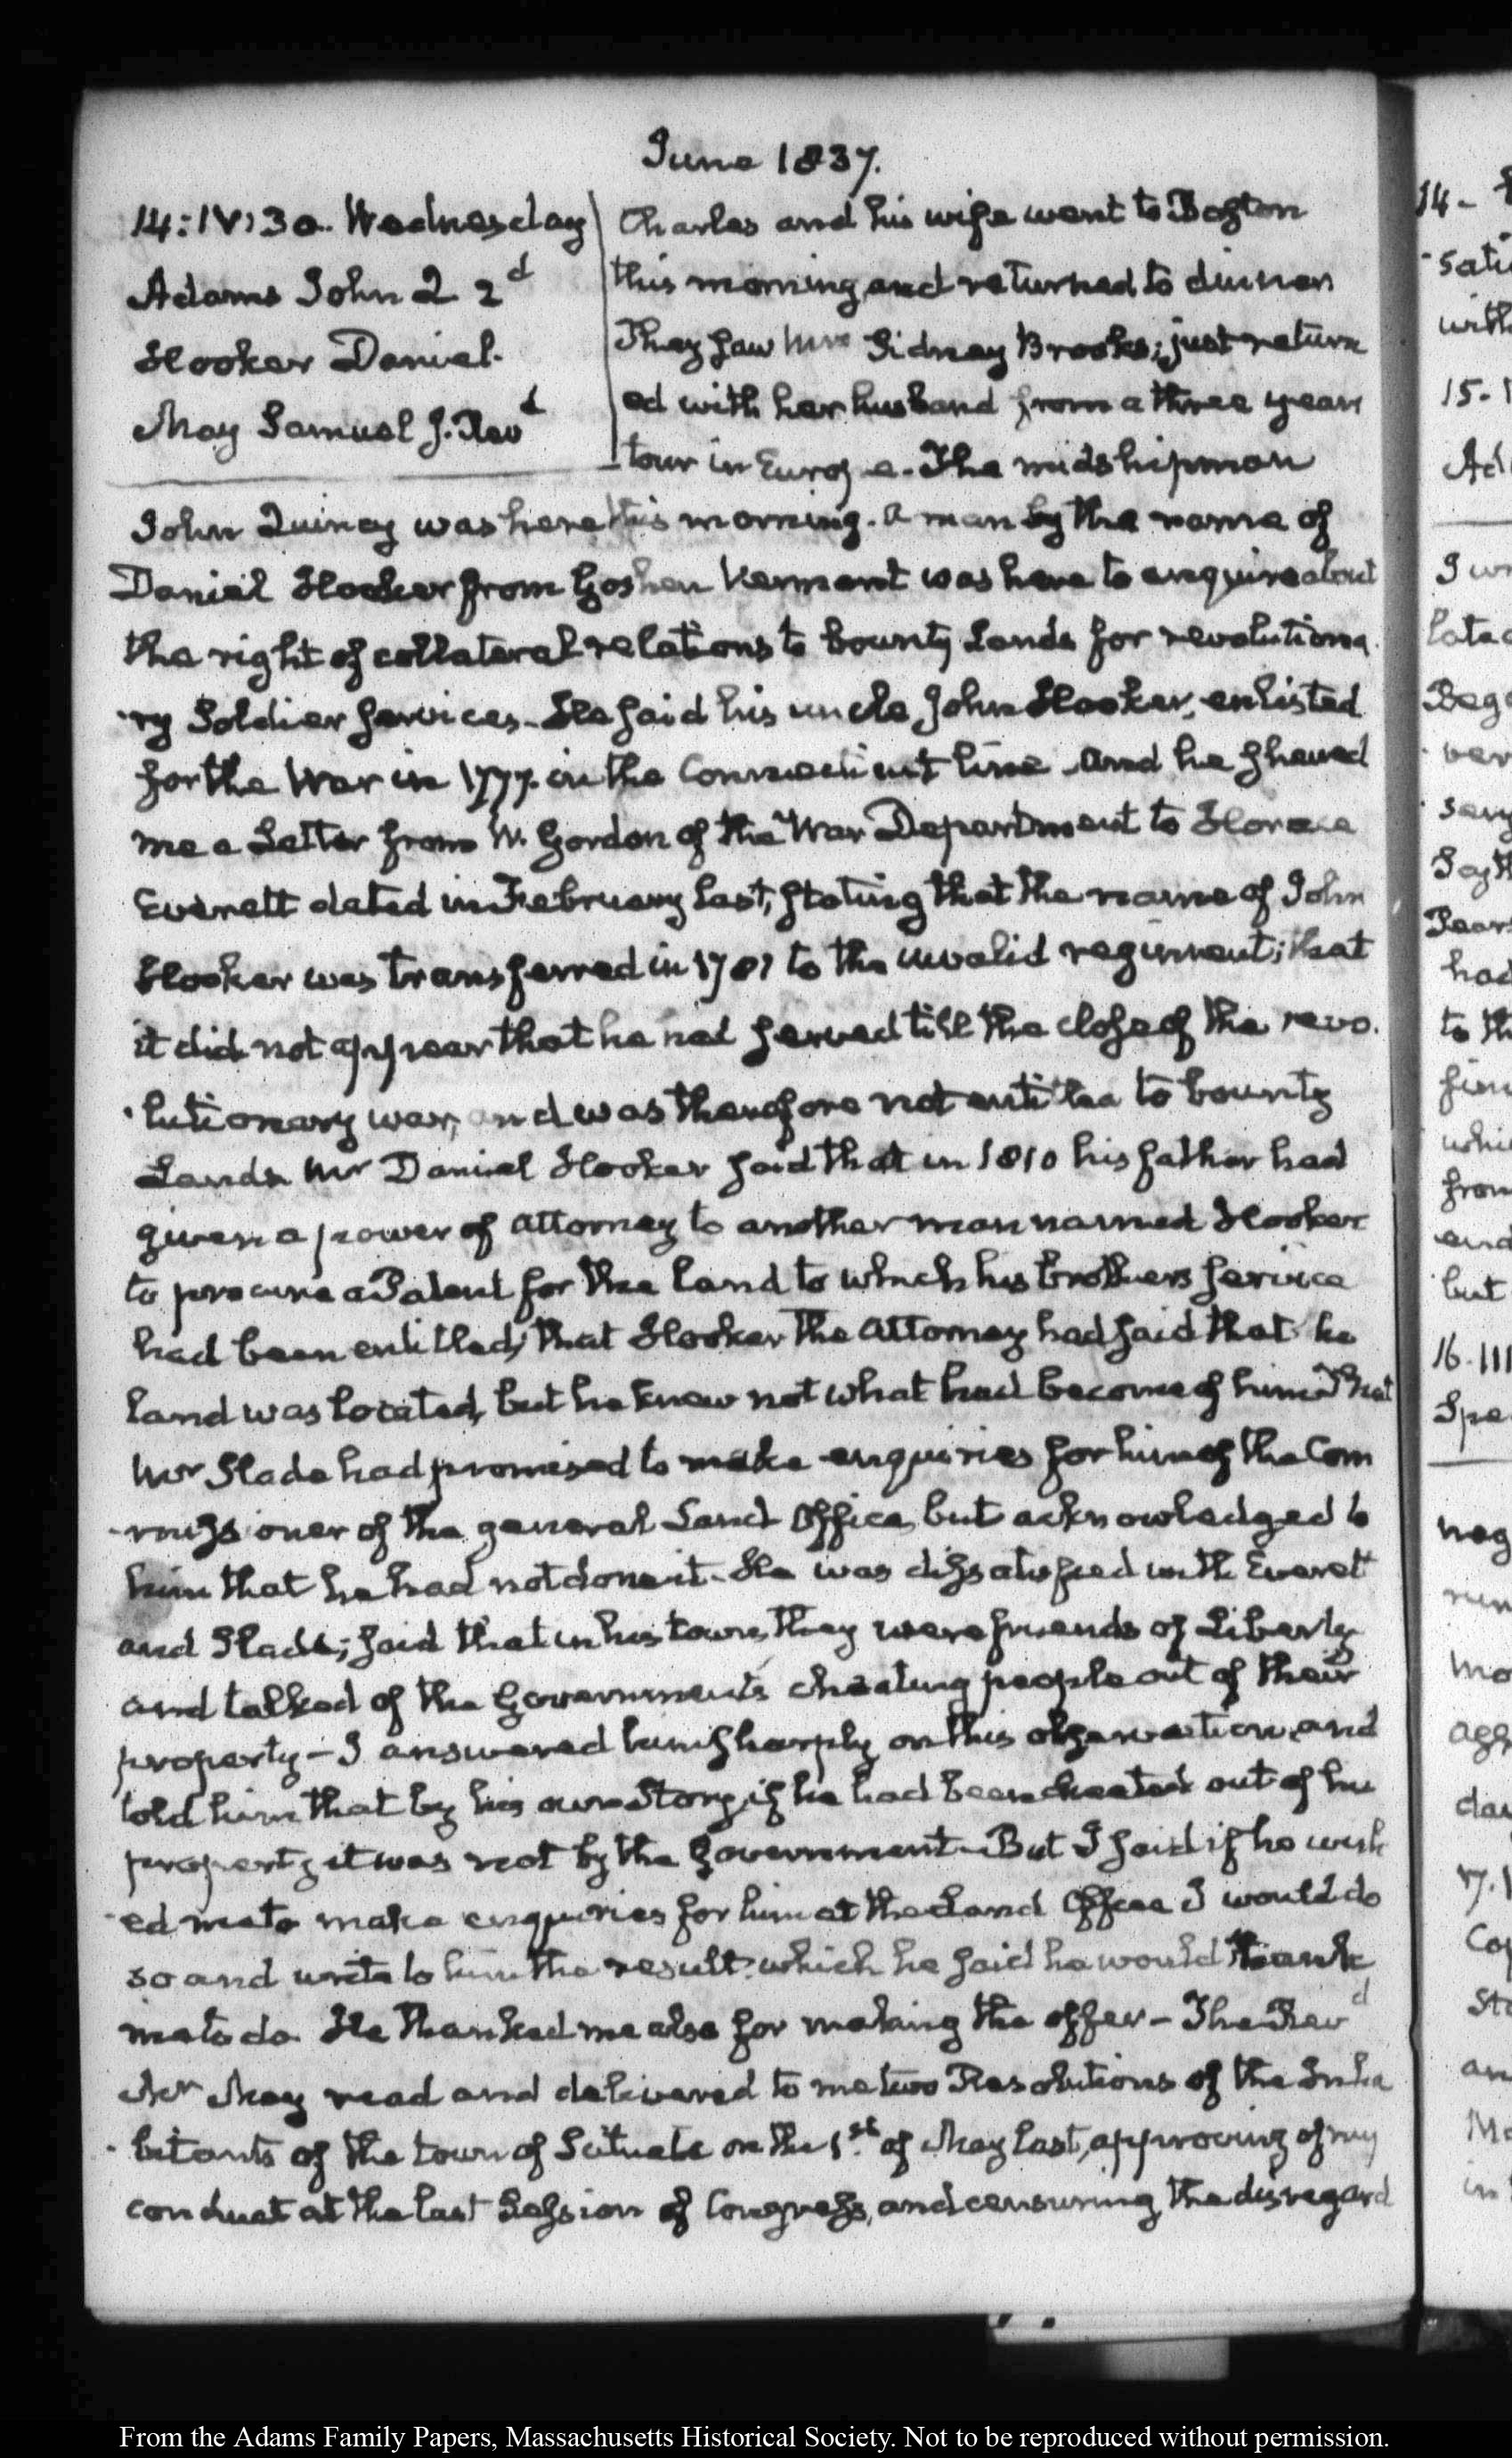 June 1837.
14: IV:30. Wednesday
Adams John Q 2d
Hooker Daniel.
May Samuel J. Revd
Charles and his wife went to Boston
this morning and returned to dinner
They saw Mrs Sidney Brooks; just return
ed with her husband from a three years
tour in Europe. The midshipman
John Quincy was here this morning. A man by the name of
Daniel Hooker from Goshen Vermont was here to enquire about
the right of collateral relations to bounty Lands for revolutiona
-ry Soldier services. He said his uncle John Hooker, enlisted
for the War in 1777. in the Connecticut line and he shewed
me a Letter from W. Gordon of the War Department to Horace
Everett dated in February last, stating that the name of John
Hooker was transferred in 1781 to the invalid regiment; that
it did not appear that he had served till the close of the revo.
-lutionary war, and was therefore not entitled to bounty
Lands. Mr Daniel Hooker said that in 1810 his father had
given a power of attorney to another man named Hooker
to procure a Patent for the land to which his brothers service
had been entitled; that Hooker the attorney had said that he
land was located, but he knew not what had become of him. That
Mr Slade had promised to make enquiries for him of the Com
-missioner of the general Land Office, but acknowledged to
him that he had not done it. He was dissatisfied with Everett
and Slade; said that in his town, they were friends of Liberty
and talked of the Government's cheating people out of their
property - I answered him sharply on this observation, and
told him that by his own Story, if he had been cheated out of his
property it was not by the Government. But I said if he wish
-ed me to make enquiries for him at the Land Office I would do
so and write to him the result, which he said he would thank
me to do. He thanked me also for making the offer - The Revd
Mr May read and delivered to me two Resolutions of the Inha
-bitants of the town of Scituate on the 1st of May last, approving of my
conduct at the last Session of Congress, and censuring the disregard
From the Adams Family Papers, Massachusetts Historical Society. Not to be reproduced without permission.